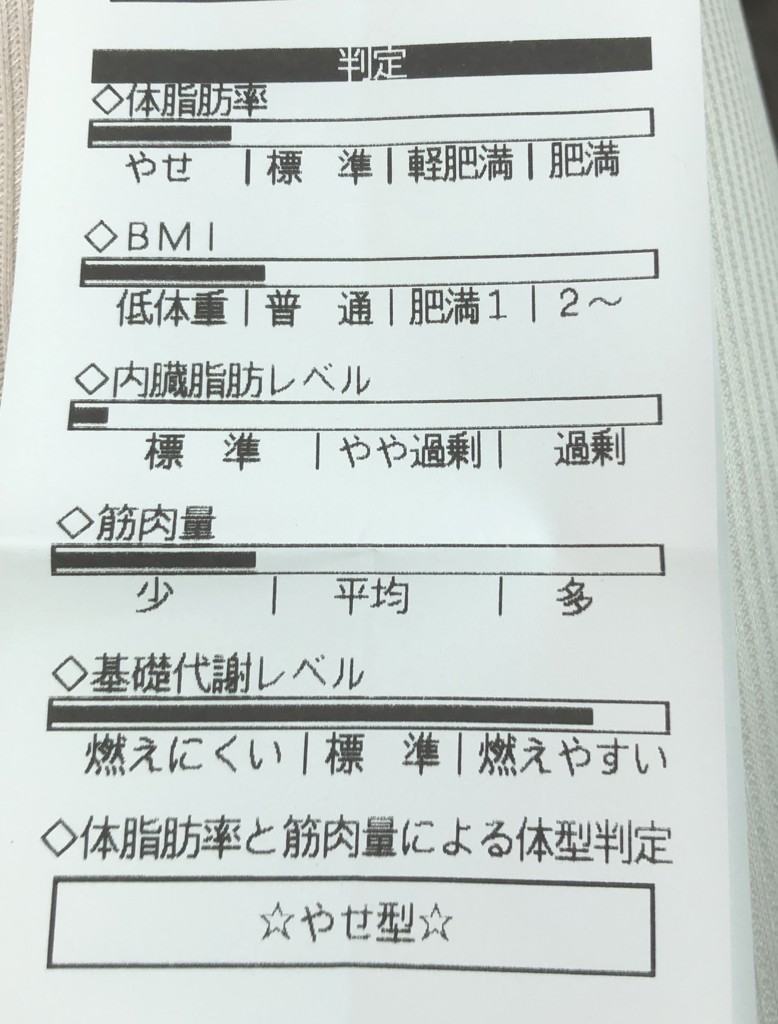 判定
◇体脂肪率
やせ | 標 準 | 軽肥満 | 肥満
◇BMI
低体重 | 普 通 | 肥満1 | 2〜
◇内臓脂肪レベル
標 準 | やや過剰 | 過剰
◇筋肉量
少 | 平均 | 多
◇基礎代謝レベル
燃えにくい | 標 準 | 燃えやすい
◇体脂肪率と筋肉量による体型判定
☆やせ型☆